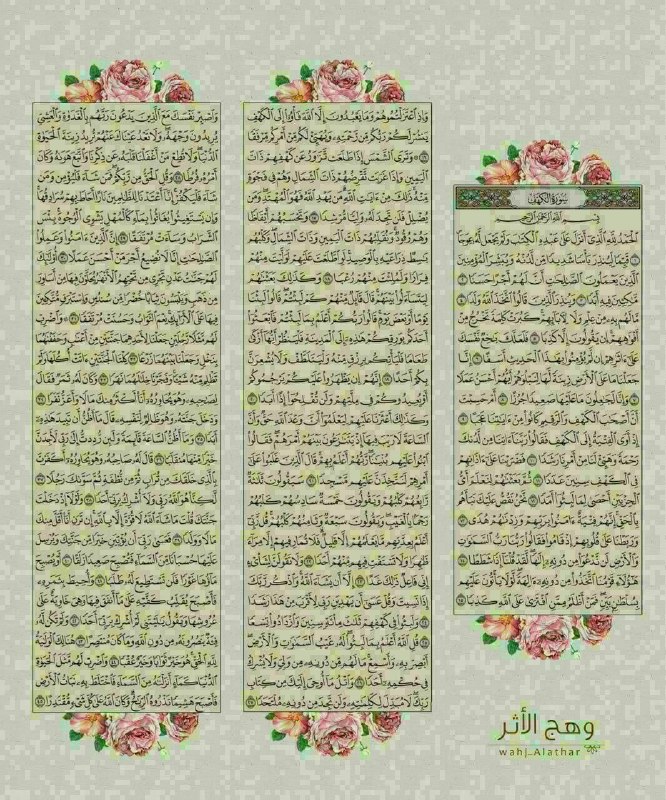 سورة الكهف
بسم الله الرحمن الرحيم
الحمد لله الذي أنزل على عبده الكتب ولم يجعل له عوجا
١ قيما لينذر بأسا شديدا من لدنه ويبشر المؤمنين
الذين يعملون الصلحت أن لهم أجرا حسنا ٢
مكثين فيه أبدا ٣ وينذر الذين قالوا اتخذ الله ولدا ٤
ما لهم به من علم ولا لأبائهم كبرت كلمة تخرج من
أفوههم إن يقولون إلا كذبا ٥ فلعلك بخع نفسك
على ءاثرهم إن لم يؤمنوا بهذا الحديث أسفا ٦ إنا
جعلنا ما على الأرض زينة لها لنبلوهم أيهم أحسن عملا
٧ وإنا لجعلون ما عليها صعيدا جرزا ٨ أم حسبت
أن أصحب الكهف والرقيم كانوا من ءايتنا عجبا ٩
إذ أوى الفتية إلى الكهف فقالوا ربنا ءاتنا من لدنك
رحمة وهيئ لنا من أمرنا رشدا ١٠ فضربنا على ءاذانهم
في الكهف سنين عددا ١١ ثم بعثنهم لنعلم أي
الحزبين أحصى لما لبثوا أمدا ١٢ نحن نقص عليك نبأهم
بالحق إنهم فتية ءامنوا بربهم وزدنهم هدى ١٣
وربطنا على قلوبهم إذ قاموا فقالوا ربنا رب السموت
والأرض لن ندعوا من دونه إلها لقد قلنا إذا شططا ١٤
هؤلاء قومنا اتخذوا من دونه ءالهة لولا يأتون عليهم
بسلطن بين فمن أظلم ممن افترى على الله كذبا ١٥
وإذ اعتزلتموهم وما يعبدون إلا الله فأوا إلى الكهف
ينشر لكم ربكم من رحمته ويهيئ لكم من أمركم مرفقا
١٦ وترى الشمس إذا طلعت تزور عن كهفهم ذات
اليمين وإذا غربت تقرضهم ذات الشمال وهم في فجوة
منه ذلك من ءايت الله من يهد الله فهو المهتد ومن
يضلل فلن تجد له وليا مرشدا ١٧ وتحسبهم أيقاظا
وهم رقود ونقلبهم ذات اليمين وذات الشمال وكلبهم
بسط ذراعيه بالوصيد لو اطلعت عليهم لوليت منهم
فرارا ولملئت منهم رعبا ١٨ وكذلك بعثنهم
ليتساءلوا بينهم قال قائل منهم كم لبثتم قالوا لبثنا
يوما أو بعض يوم قالوا ربكم أعلم بما لبثتم فابعثوا
أحدكم بورقكم هذه إلى المدينة فلينظر أيها أزكى
طعاما فليأتكم برزق منه وليتلطف ولا يشعرن
بكم أحدا ١٩ إنهم إن يظهروا عليكم يرجموكم
أو يعيدوكم في ملتهم ولن تفلحوا إذا أبدا ٢٠
وكذلك أعثرنا عليهم ليعلموا أن وعد الله حق وأن
الساعة لا ريب فيها إذ يتنزعون بينهم أمرهم فقالوا
ابنوا عليهم بنينا ربهم أعلم بهم قال الذين غلبوا على
أمرهم لنتخذن عليهم مسجدا ٢١ سيقولون ثلثة
رابعهم كلبهم ويقولون خمسة سادسهم كلبهم
رجما بالغيب ويقولون سبعة وثامنهم كلبهم قل ربي
أعلم بعدتهم ما يعلمهم إلا قليل فلا تمار فيهم إلا مراء
ظهرا ولا تستفت فيهم منهم أحدا ٢٢ ولا تقولن لشايء
إني فاعل ذلك غدا ٢٣ إلا أن يشاء الله واذكر ربك
إذا نسيت وقل عسى أن يهدين ربي لأقرب من هذا رشدا
٢٤ ولبثوا في كهفهم ثلث مائة سنين وازدادوا تسعا
٢٥ قل الله أعلم بما لبثوا له غيب السموت والأرض
أبصر به وأسمع ما لهم من دونه من ولي ولا يشرك
في حكمه أحدا ٢٦ واتل ما أوحي إليك من كتاب
ربك لا مبدل لكلمته ولن تجد من دونه ملتحدا ٢٧
واصبر نفسك مع الذين يدعون ربهم بالغدوة والعشي
يريدون وجهه ولا تعد عيناك عنهم تريد زينة الحيوة
الدنيا ولا تطع من أغفلنا قلبه عن ذكرنا واتبع هوىه وكان
أمره فرطا ٢٨ وقل الحق من ربكم فمن شاء فليؤمن ومن
شاء فليكفر إنا أعتدنا للظلمين نارا أحاط بهم سرادقها
وإن يستغيثوا يغاثوا بماء كالمهل يشوي الوجوه بئس
الشراب وساءت مرتفقا ٢٩ إن الذين ءامنوا وعملوا
الصلحت إنا لا نضيع أجر من أحسن عملا ٣٠ أولئك
لهم جنت عدن تجري من تحتهم الأنهر يحلون فيها من أساور
من ذهب ويلبسون ثيابا خضرا من سندس وإستبرق متكئين
فيها على الأرائك نعم الثواب وحسنت مرتفقا ٣١ واضرب
لهم مثلا رجلين جعلنا لأحدهما جنتين من أعنب وحففنهما
بنخل وجعلنا بينهما زرعا ٣٢ كلتا الجنتين ءاتت أكلها ولم
تظلم منه شيئا وفجرنا خللهما نهرا ٣٣ وكان له ثمر فقال
لصحبه وهو يحاوره أنا أكثر منك مالا وأعز نفرا ٣٤
ودخل جنته وهو ظالم لنفسه قال ما أظن أن تبيد هذه
أبدا ٣٥ وما أظن الساعة قائمة ولئن رددت إلى ربي لأجدن
خيرا منها منقلبا ٣٦ قال له صاحبه وهو يحاوره أكفرت
بالذي خلقك من تراب ثم من نطفة ثم سوىك رجلا ٣٧
لكنا هو الله ربي ولا أشرك بربي أحدا ٣٨ ولولا إذ دخلت
جنتك قلت ما شاء الله لا قوة إلا بالله إن ترن أنا أقل منك
مالا وولدا ٣٩ فعسى ربي أن يؤتين خيرا من جنتك ويرسل
عليها حسبانا من السماء فتصبح صعيدا زلقا ٤٠ أو يصبح
ماؤها غورا فلن تستطيع له طلبا ٤١ وأحيط بثمره
فأصبح يقلب كفيه على ما أنفق فيها وهي خاوية على
عروشها ويقول يليتني لم أشرك بربي أحدا ٤٢ ولم تكن له
فئة ينصرونه من دون الله وما كان منتصرا ٤٣ هنالك الولية
لله الحق هو خير ثوابا وخير عقبا ٤٤ واضرب لهم مثل الحيوة
الدنيا كماء أنزلنه من السماء فاختلط به نبات الأرض
فأصبح هشيما تذروه الريح وكان الله على كل شيء مقتدرا ٤٥
وهج الأثر
wahj_Alathar